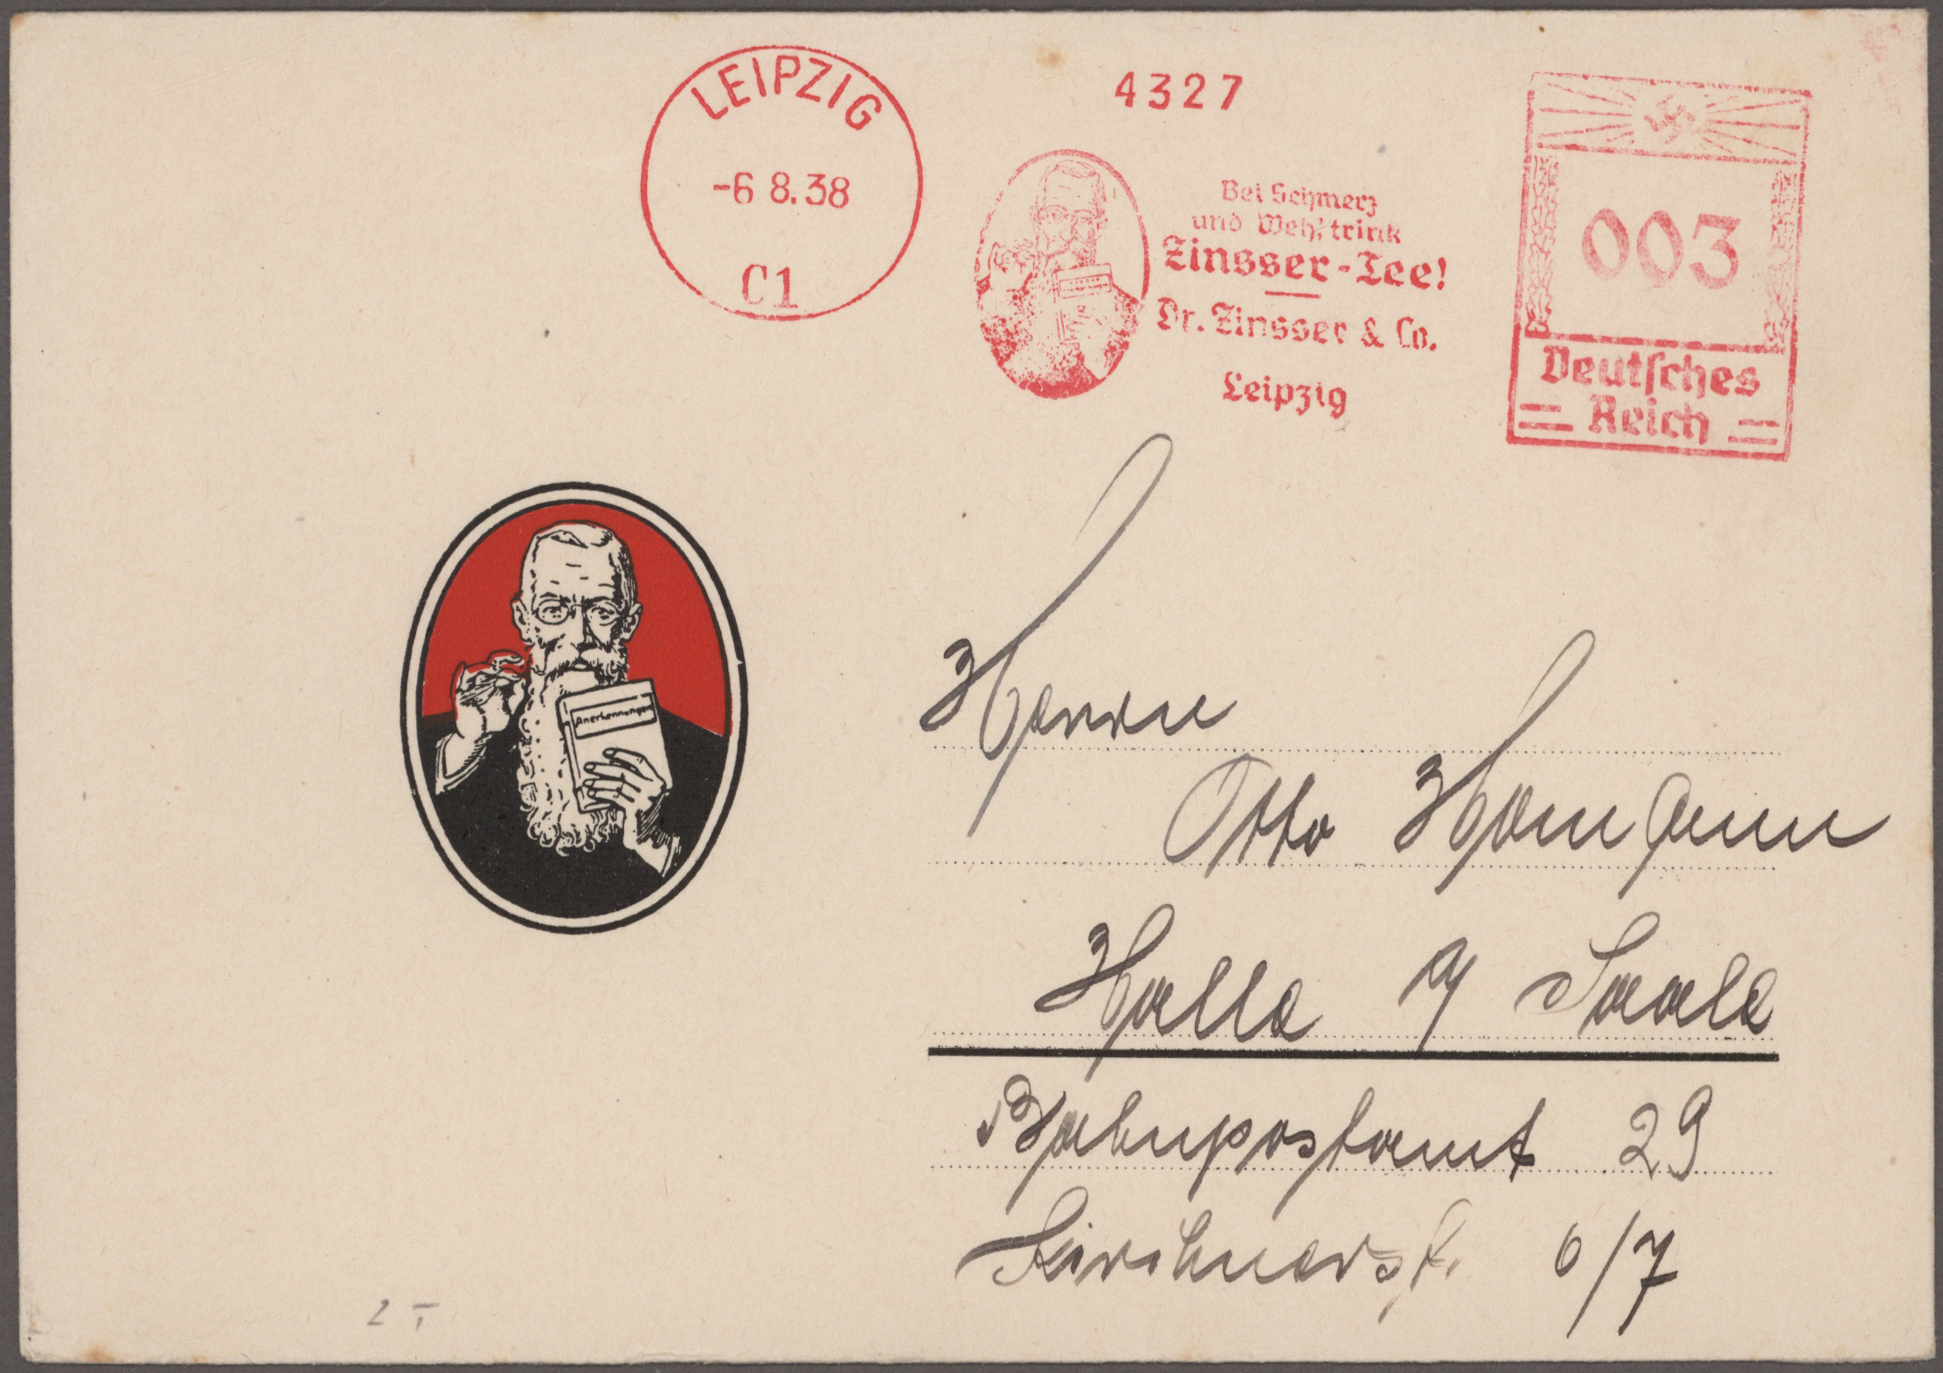 LEIPZIG
-6 8.38
C1
4327
Bei Schmerz
und Weh, trink
Zinsser-Tee!
Dr. Zinsser & Co.
Leipzig
003
Deutsches
Reich
Anerkennungen
Herrn
Otto Homann
Halle a/ Saale
Bahnpostamt 29
Kirchnerst. 6/7
2 T